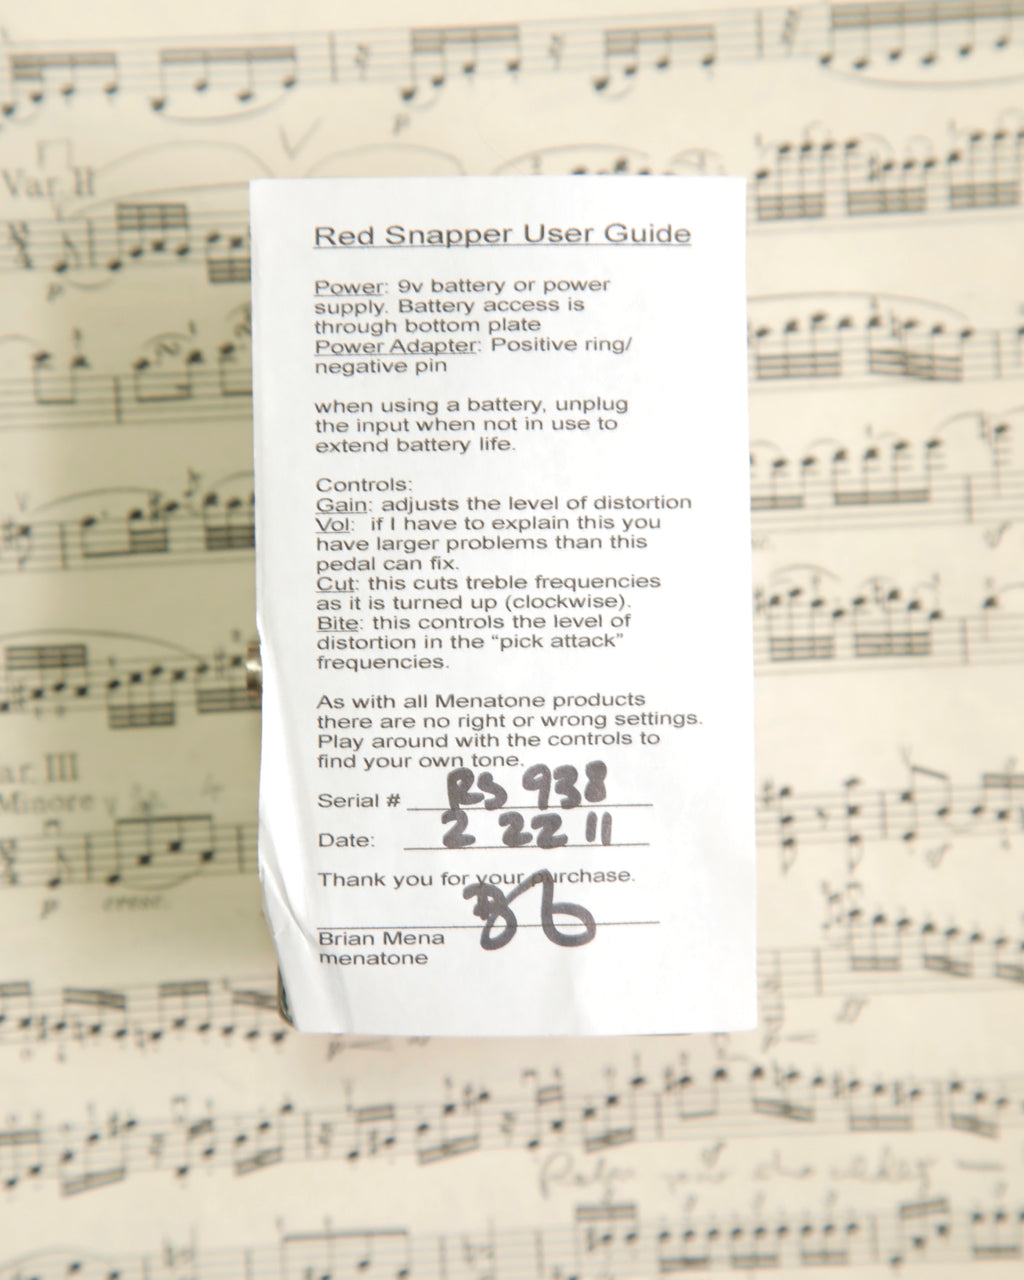 Var. II
Red Snapper User Guide
Power: 9v battery or power
supply. Battery access is
through bottom plate
Power Adapter: Positive ring/
negative pin
when using a battery, unplug
the input when not in use to
extend battery life.
Controls:
Gain: adjusts the level of distortion
Vol: if I have to explain this you
have larger problems than this
pedal can fix.
Cut: this cuts treble frequencies
as it is turned up (clockwise).
Bite: this controls the level of
distortion in the “pick attack”
frequencies.
As with all Menatone products
there are no right or wrong settings.
Play around with the controls to
find your own tone.
Serial # RS 938
Date: 2 22 11
Thank you for your purchase.
Brian Mena
menatone
ar. III
Minore
p cresc.